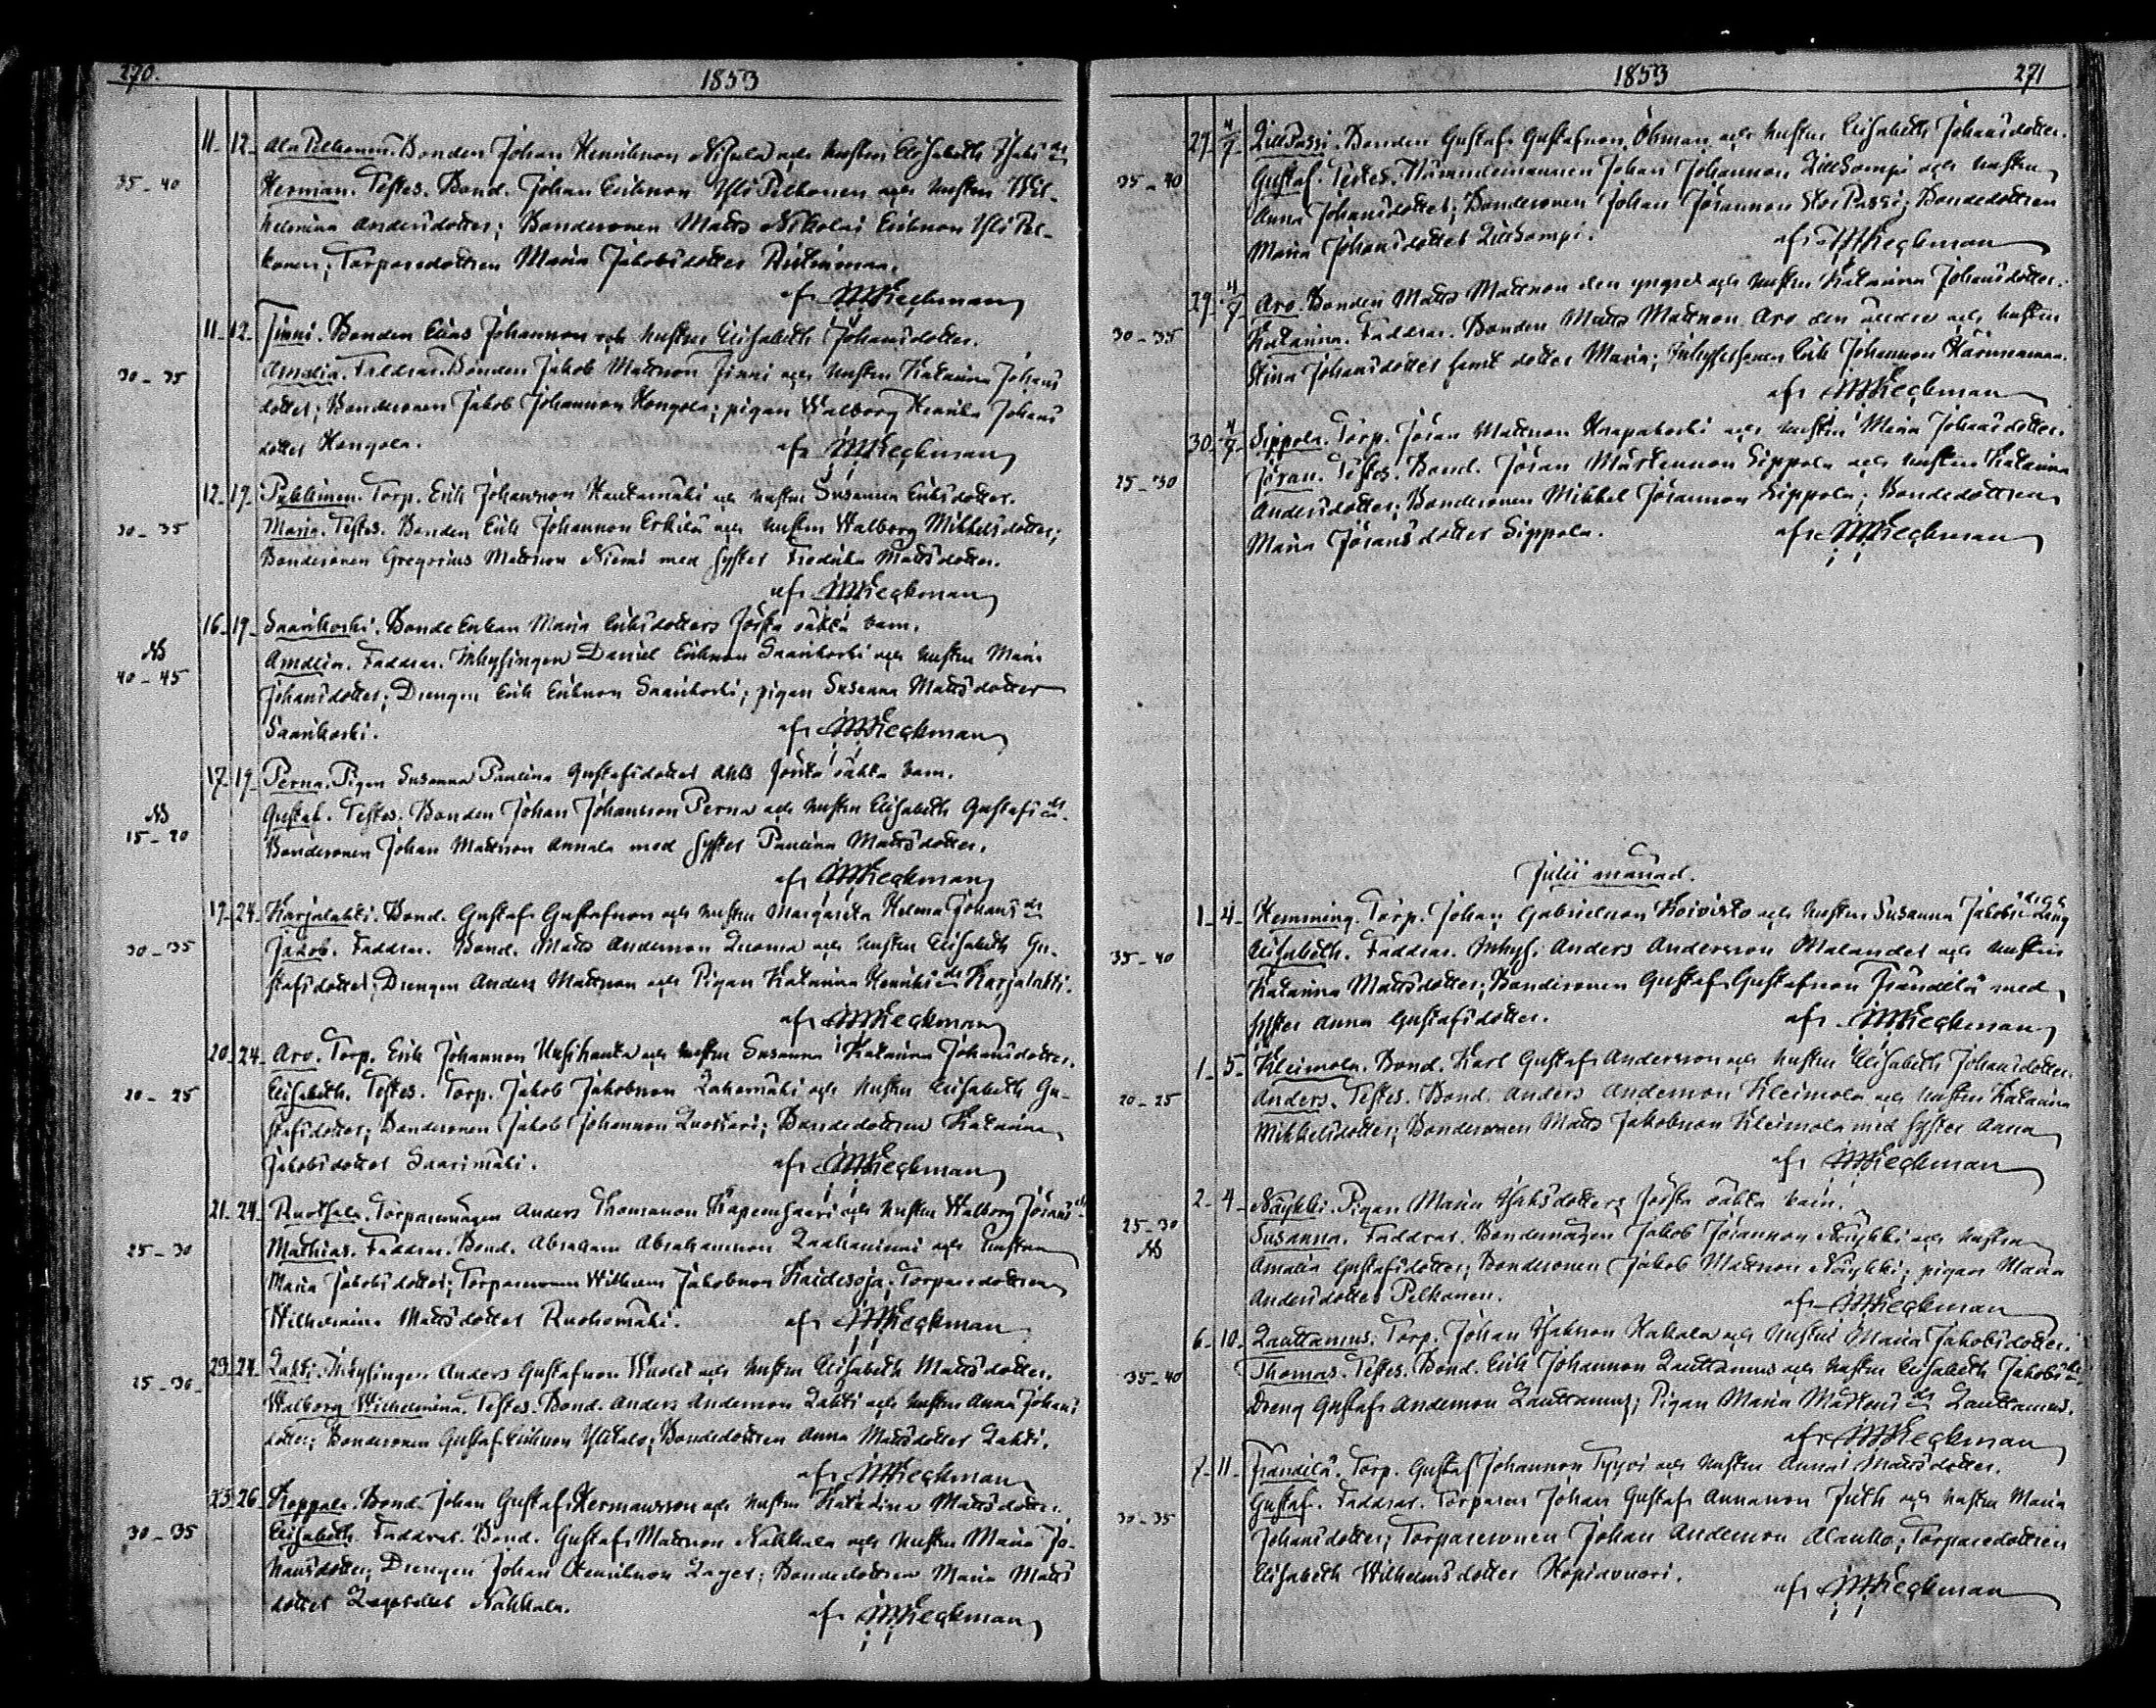 270.
1853
11. 12. Ala Pelkonen. Bonden Johan Henriksson Nisula och hustru Elisabeth Isaks dr
35-40 Herman. Testes. Bond. Johan Eriksson Yli Pelkonen och hustru Wil-
helmina Andersdotter; Bondesonen Matts Nikolai Eriksson Yli Pel-
konen; Torparedottren Maria Jakobsdotter
af
11. 12. Finni. Bonden Elias Johansson och hustru Elisabeth Johansdotter.
30-35 Amalia. Faddrar. Bonden Jakob Mattsson Finni och hustru Katarina Johans
dotter; Bondesonen Jakob Johansson Hongola; pigan Walborg Henrika Johans
dotter Hongola. af
12. 19. Pukkinen. Torp. Erik Johansson Hautamäki och hustru Susanna Eriksdotter.
30-35 Maria. Testes. Bonden Erik Johansson Erkilä och hustru Walborg Mikkelsdotter;
Bondesonen Gregorius Mattsson Niemi med syster Fredrika Mattsdotter.
af
16. 19. Saarikoski. Bonde Enkan Maria Eriksdotters första oäkta barn.
NB
40-45 Amalia. Faddrar. Inhysingen Daniel Eriksson Saarikoski och hustru Maria
Johansdotter; Drengen Erik Eriksson Saarikoski; pigan Susanna Mattsdotter
Saarikoski. af
17. 19. Perna. Pigan Susanna Paulina Gustafsdotter Ahls första oäkta barn.
NB
15-20 Gustaf. Testes. Bonden Johan Johansson Perna och hustru Elisabeth Gustafs dr.
Bondesonen Johan Mattsson Annala med syster Paulina Mattsdotter.
af
19. 24. Karjalahti. Bond. Gustaf Gustafsson och hustru Margareta Helena Johans dr
30-35 Jakob. Faddrar. Bond. Matts Andersson Luoma och hustru Elisabeth Gu-
stafsdotter; Drengen Anders Mattsson och Pigan Katarina Henriks dr Karjalahti.
af
20. 24. Aro. Torp. Erik Johansson Uusihanka och hustru Susanna Katarina Johansdotter.
20-25 Elisabeth. Testes. Torp. Jakob Jakobsson Lakomäki och hustru Elisabeth Gu-
stafsdotter; Bondesonen Jakob Johansson Luosari; Bondedottren Katarina
Jakobsdotter Saarimäki. af
21. 24. Ruoksala. Torparemågen Anders Thomasson Kapeensaari och hustru Walborg Jörans dr
25-30 Mathias. Faddrar. Bond. Abraham Abrahamsson Laahaniemi och hustru
Maria Jakobsdotter; Torparesonen Wilhelm Jakobsson Kaidesoja; Torparedottren
Wilhelmina Mattsdotter Ruohomäki. af
23. 24. Lahti. Inhysingen Anders Gustafsson Wuolet och hustru Elisabeth Mattsdotter.
25-30 Walborg Wilhelmina. Testes. Bond. Anders Andersson Lahti och hustru Anna Johans
dotter; Bondesonen Gustaf Eriksson Ylitalo; Bondedottren Anna Mattsdotter Lahti.
af
23. 26. Koppala. Bond. Johan Gustaf Hermansson och hustru Katarina Mattsdotter.
30-35 Elisabeth. Faddrar. Bond. Gustaf Mattsson Nahkala och hustru Maria Jo-
hansdotter; Drengen Johan Henriksson Lager; Bondedottren Maria Matts
dotter Nahkala. af
1853
271
29. 4/7. Lill Passi. Bonden Gustaf Gustafsson Öhman och hustru Elisabeth Johansdotter.
35-40 Gustaf. Testes. Nämndemannen Johan Johansson Lillkampi och hustru
Anna Johansdotter; Bondesonen Johan Jöransson Stor Passi; Bondedottren
Maria Johansdotter Lillkampi. af
29. 4/7. Aro. Bonden Matts Mattsson den yngre och hustru Katarina Johansdotter.
30-35 Katarina. Faddrar. Bonden Matts Mattsson Aro den äldre och hustru
Stina Johansdotter samt dotter Maria; Inhysessonen Erik Johansson
af
30. 4/7. Sippola. Torp. Jöran Mattsson Haapakoski och hustru Maria Johansdotter.
25-30 Jöran. Testes. Bond. Jöran Mårtensson Sippola och hustru Katarina
Andersdotter; Bondesonen Mikkel Jöransson Sippola; Bondedottren
Maria Jöransdotter Sippola. af
Julii månad.
1. 4. Hemming. Torp. Johan Gabrielsson Koivisto och hustru Susanna Jakobs dr
35-40 Elisabeth. Faddrar. Inhys. Anders Andersson Malander och hustru
Katarina Mattsdotter; Bondesonen Gustaf Gustafsson Frändilä med
syster Anna Gustafsdotter. af
1. 5. Kleimola. Bond. Karl Gustaf Andersson och hustru Elisabeth Johansdotter.
20-25 Anders. Testes. Bond. Anders Andersson Kleimola och hustru Katarina
Mikkelsdotter; Bondesonen Matts Jakobsson Kleimola med syster Anna
af
2. 4. Näykki. Pigan Maria Isaksdotters första oäkta barn.
25-30
NB Susanna. Faddrar. Bondemågen Jakob Jöransson Näykki och hustru
Amalia Gustafsdotter; Bondesonen Jakob Mattsson Näykki; pigan Maria
Andersdotter Pelkonen. af
6. 10. Lauttamus. Torp. Johan Isaksson Hakala och hustru Maria Jakobsdotter.
35-40 Thomas. Testes. Bond. Erik Johansson Lauttamus och hustru Elisabeth Jakobs dr
Dreng Gustaf Andersson Lauttamus; Pigan Maria Mårtens dr Lauttamus.
af
7. 11. Frändilä. Torp. Gustaf Johansson Tyyvi och hustru Anna Mattsdotter.
30-35 Gustaf. Faddrar. Torparen Johan Gustaf Annasson Juth och hustru Maria
Johansdotter; Torparesonen Johan Andersson Alanko; Torparedottren
Elisabeth Wilhelmsdotter Kopiavuori. af